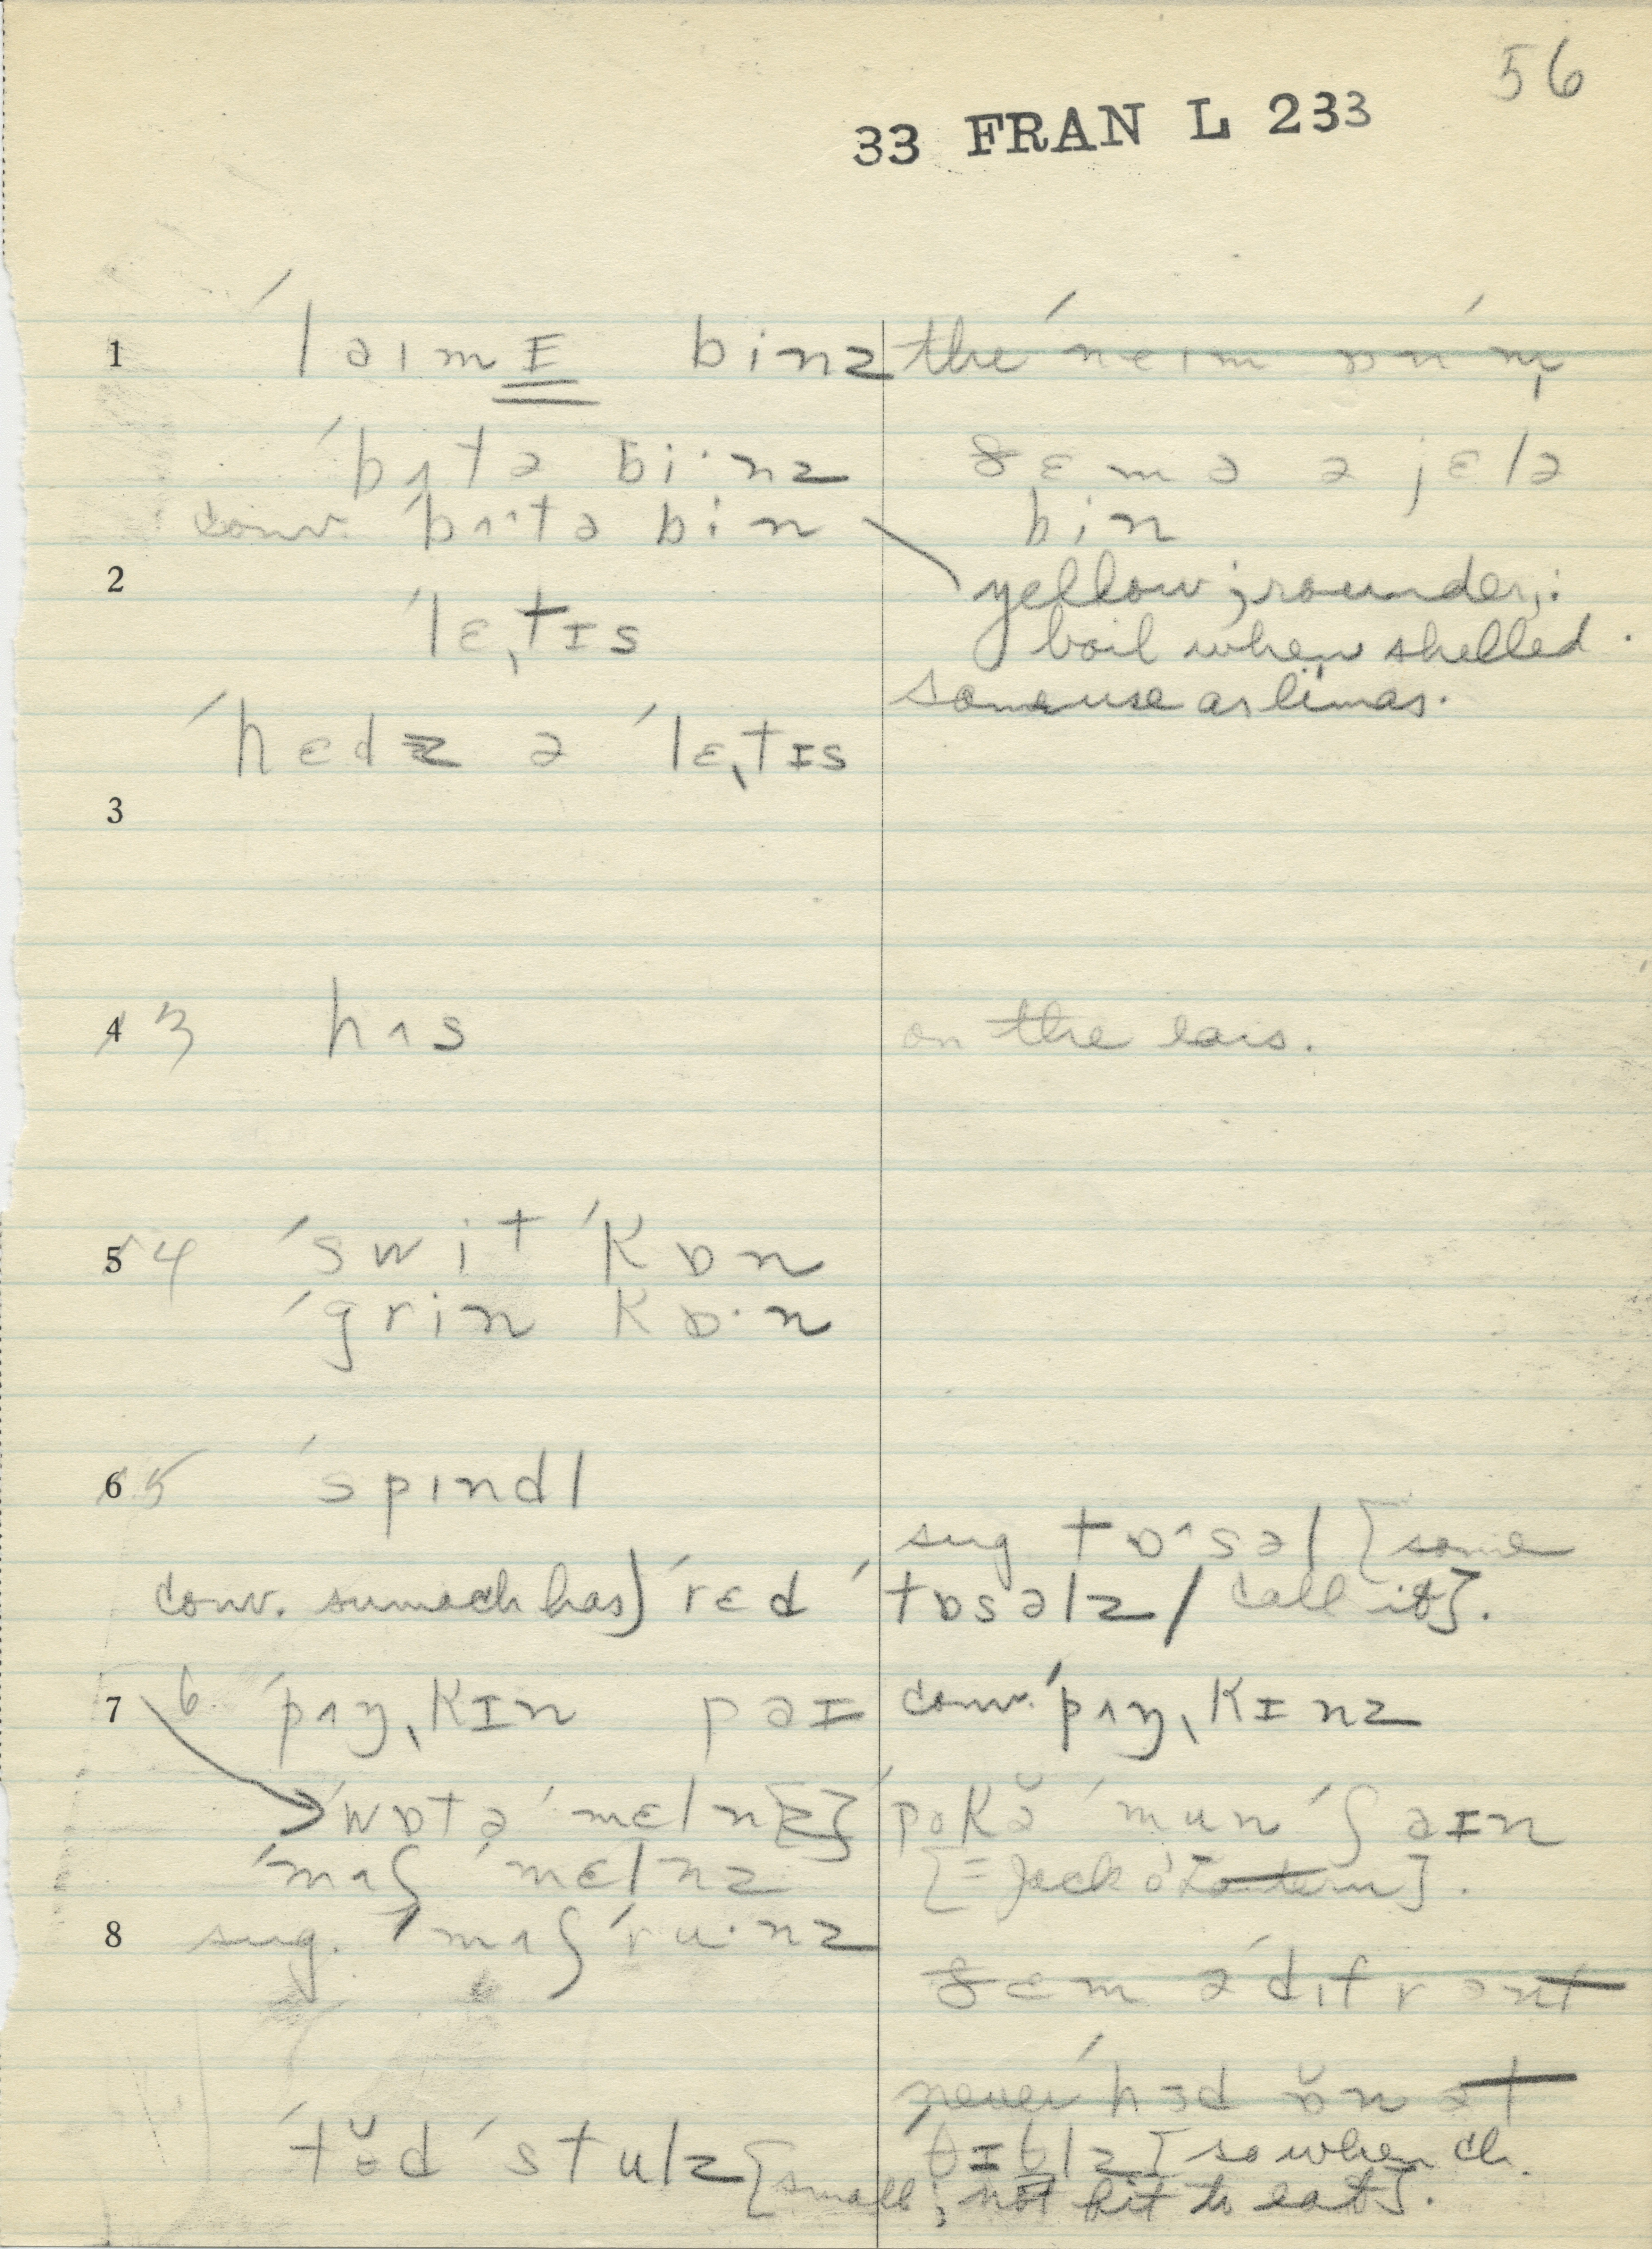 56
33 FRAN L 233
1 ˈləɪmɪ binz
the ˈneɪm ɒn ˈm̩
ˈbʌtə bi·nz
ðɛm ə ə jɛlə
conv. ˈbʌ^tə bin
bin
2
yellow; rounder;
ˈlɛ,tɪs
boil when shelled.
same use as limas.
ˈhɛdz ə ˈlɛ,tɪs
3
4 3 hʌs
on the ears.
5 4 ˈswit ˈkɒn
ˈgrin kɒ·n
6 5 ˈspɪndl
sug tɒ^səl [some
conv. sumach has) ˈrɛd ˈtɒsəlz / call it].
7 6 ˈpʌŋ,kɪn pəɪ
conv. ˈpʌŋ,kɪnz
ˈwɒtə ˈmɛln[z]
ˈmʌʃ ˈmɛlnz
[= Jack o'Lantern].
8 sug. ˈmʌʃˈru·nz
ðɛm ə ˈdɪfrənt
never ˈhɜd ɒ̆n ət
ˈtŏəd ˈstulz [small; not fit to eat].
[so when ch.